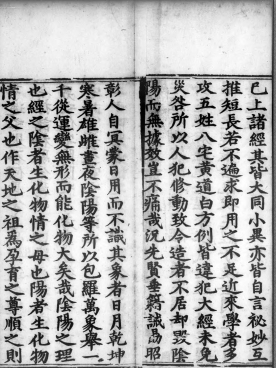 已上諸經其皆大同小異亦皆自言祕妙互
推短長若不遍求即用之不足近來學者多
攻五姓八宅黃道白方例皆違犯大經未免
災咎所以人犯修動致令造者不居却毀陰
陽而無據效豈不痛哉況先賢垂籍誡昭
彰人自冥蒙日用而不識其象者日月乾坤
寒暑雄雌晝夜陰陽等所以包羅萬象舉一
千從運變無形而能化物大矣哉陰陽之理
也經之陰者生化物情之母也陽者生化物
情之父也作天地之祖為孕育之尊順之則